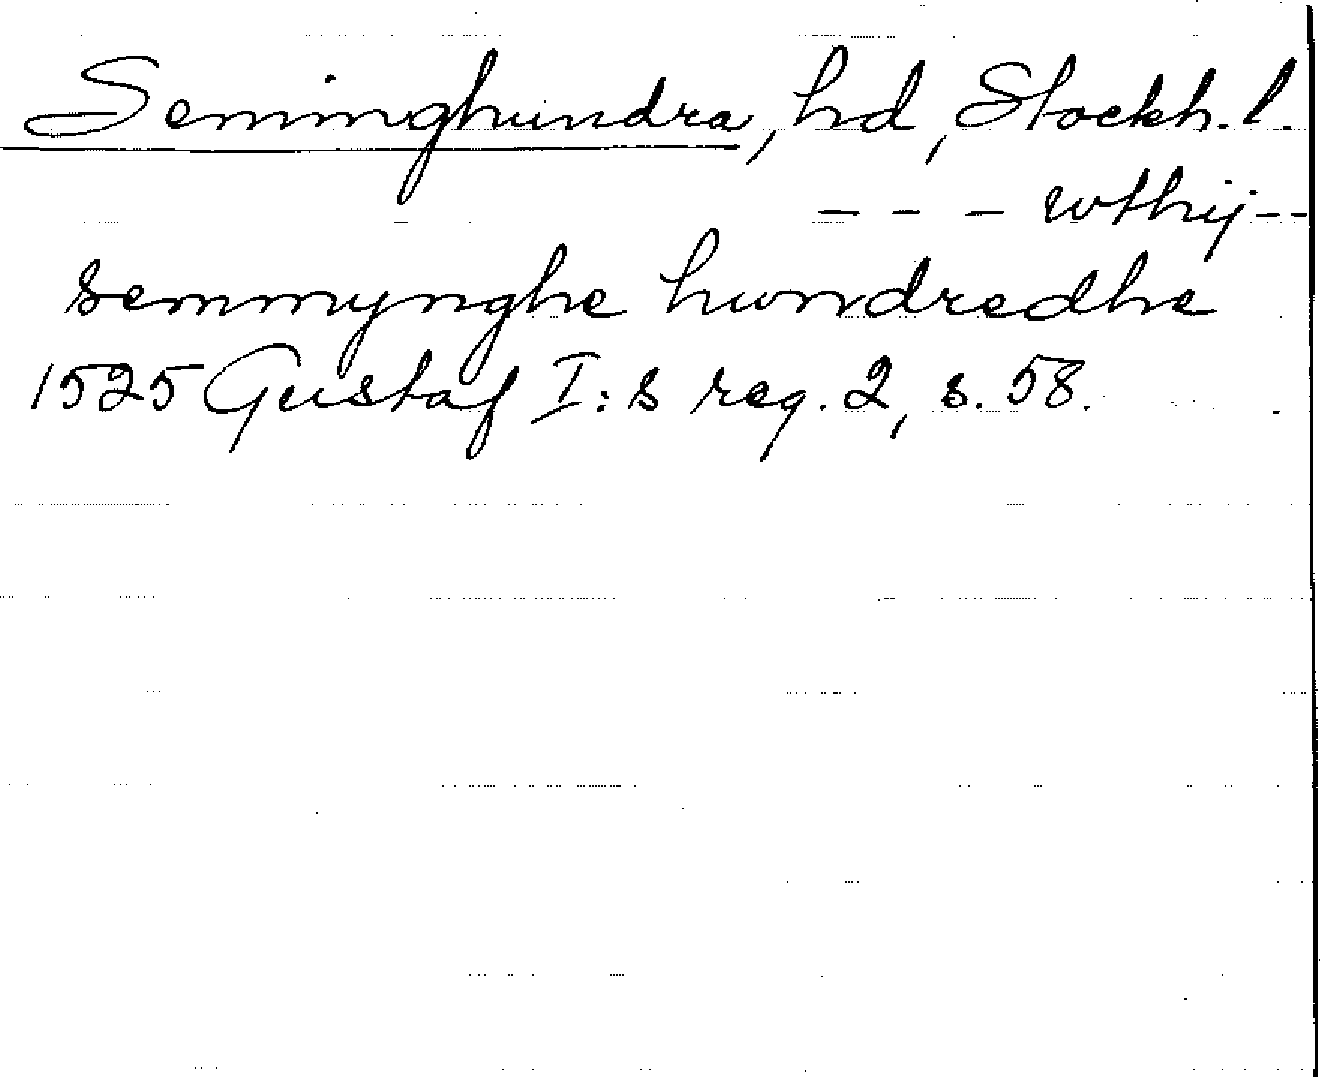 Seminghundra, hd, Stockh. l.
- - - wthij - -
semmynghe hwndredhe
1525 Gustaf I:s reg. 2, s. 58.